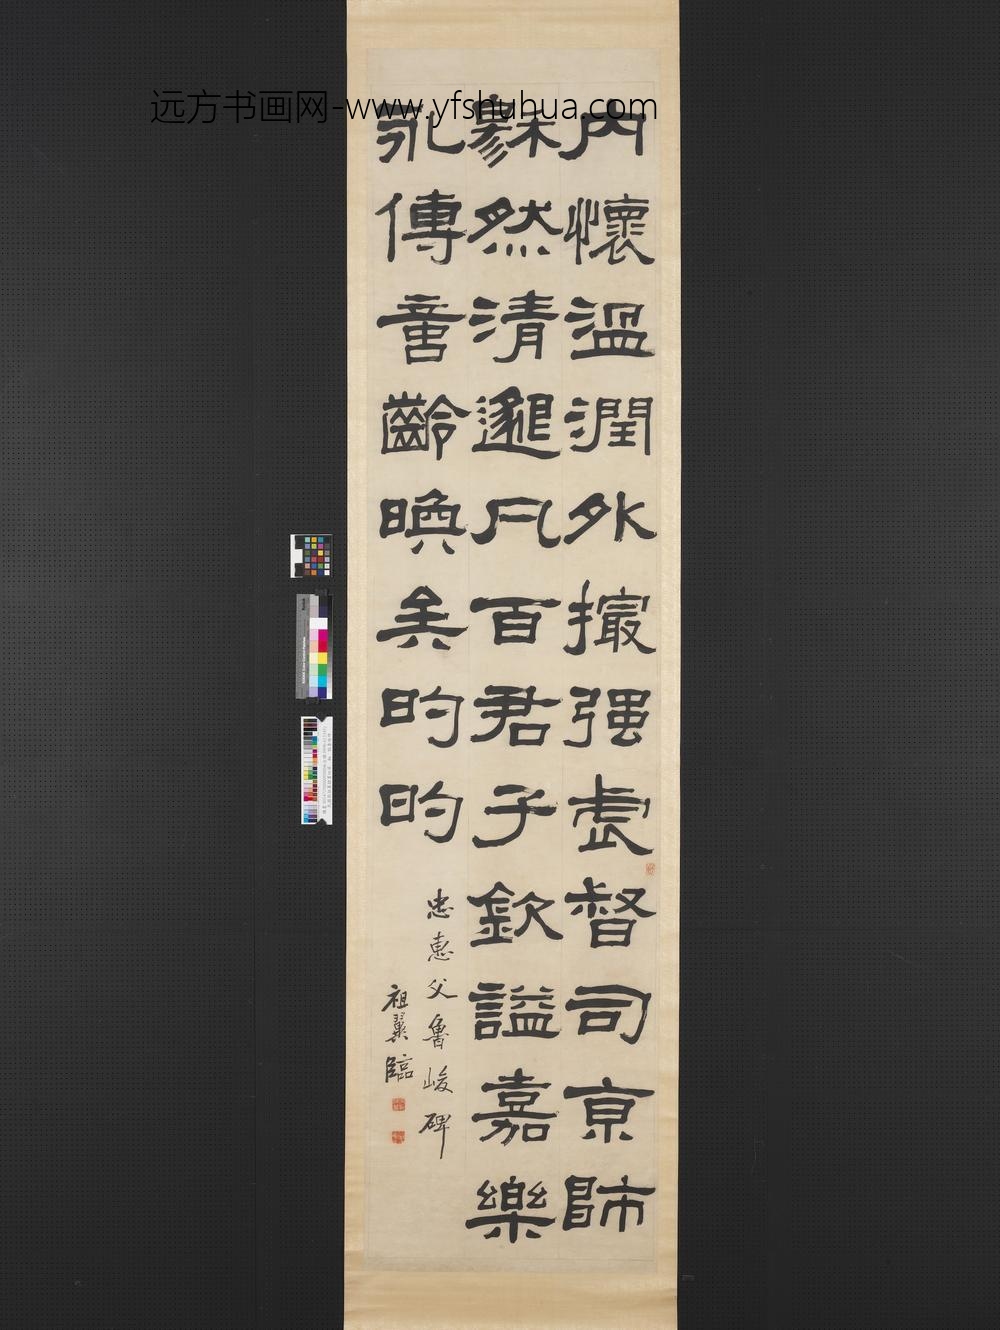 远方书画网-www.yfshuhua.com
内懷溫潤外撮强虐督司京師
穆然清邈凡百君子欽謚嘉樂
永傳啻齡㬇矣旳旳
忠惠父魯峻碑
祖翼臨